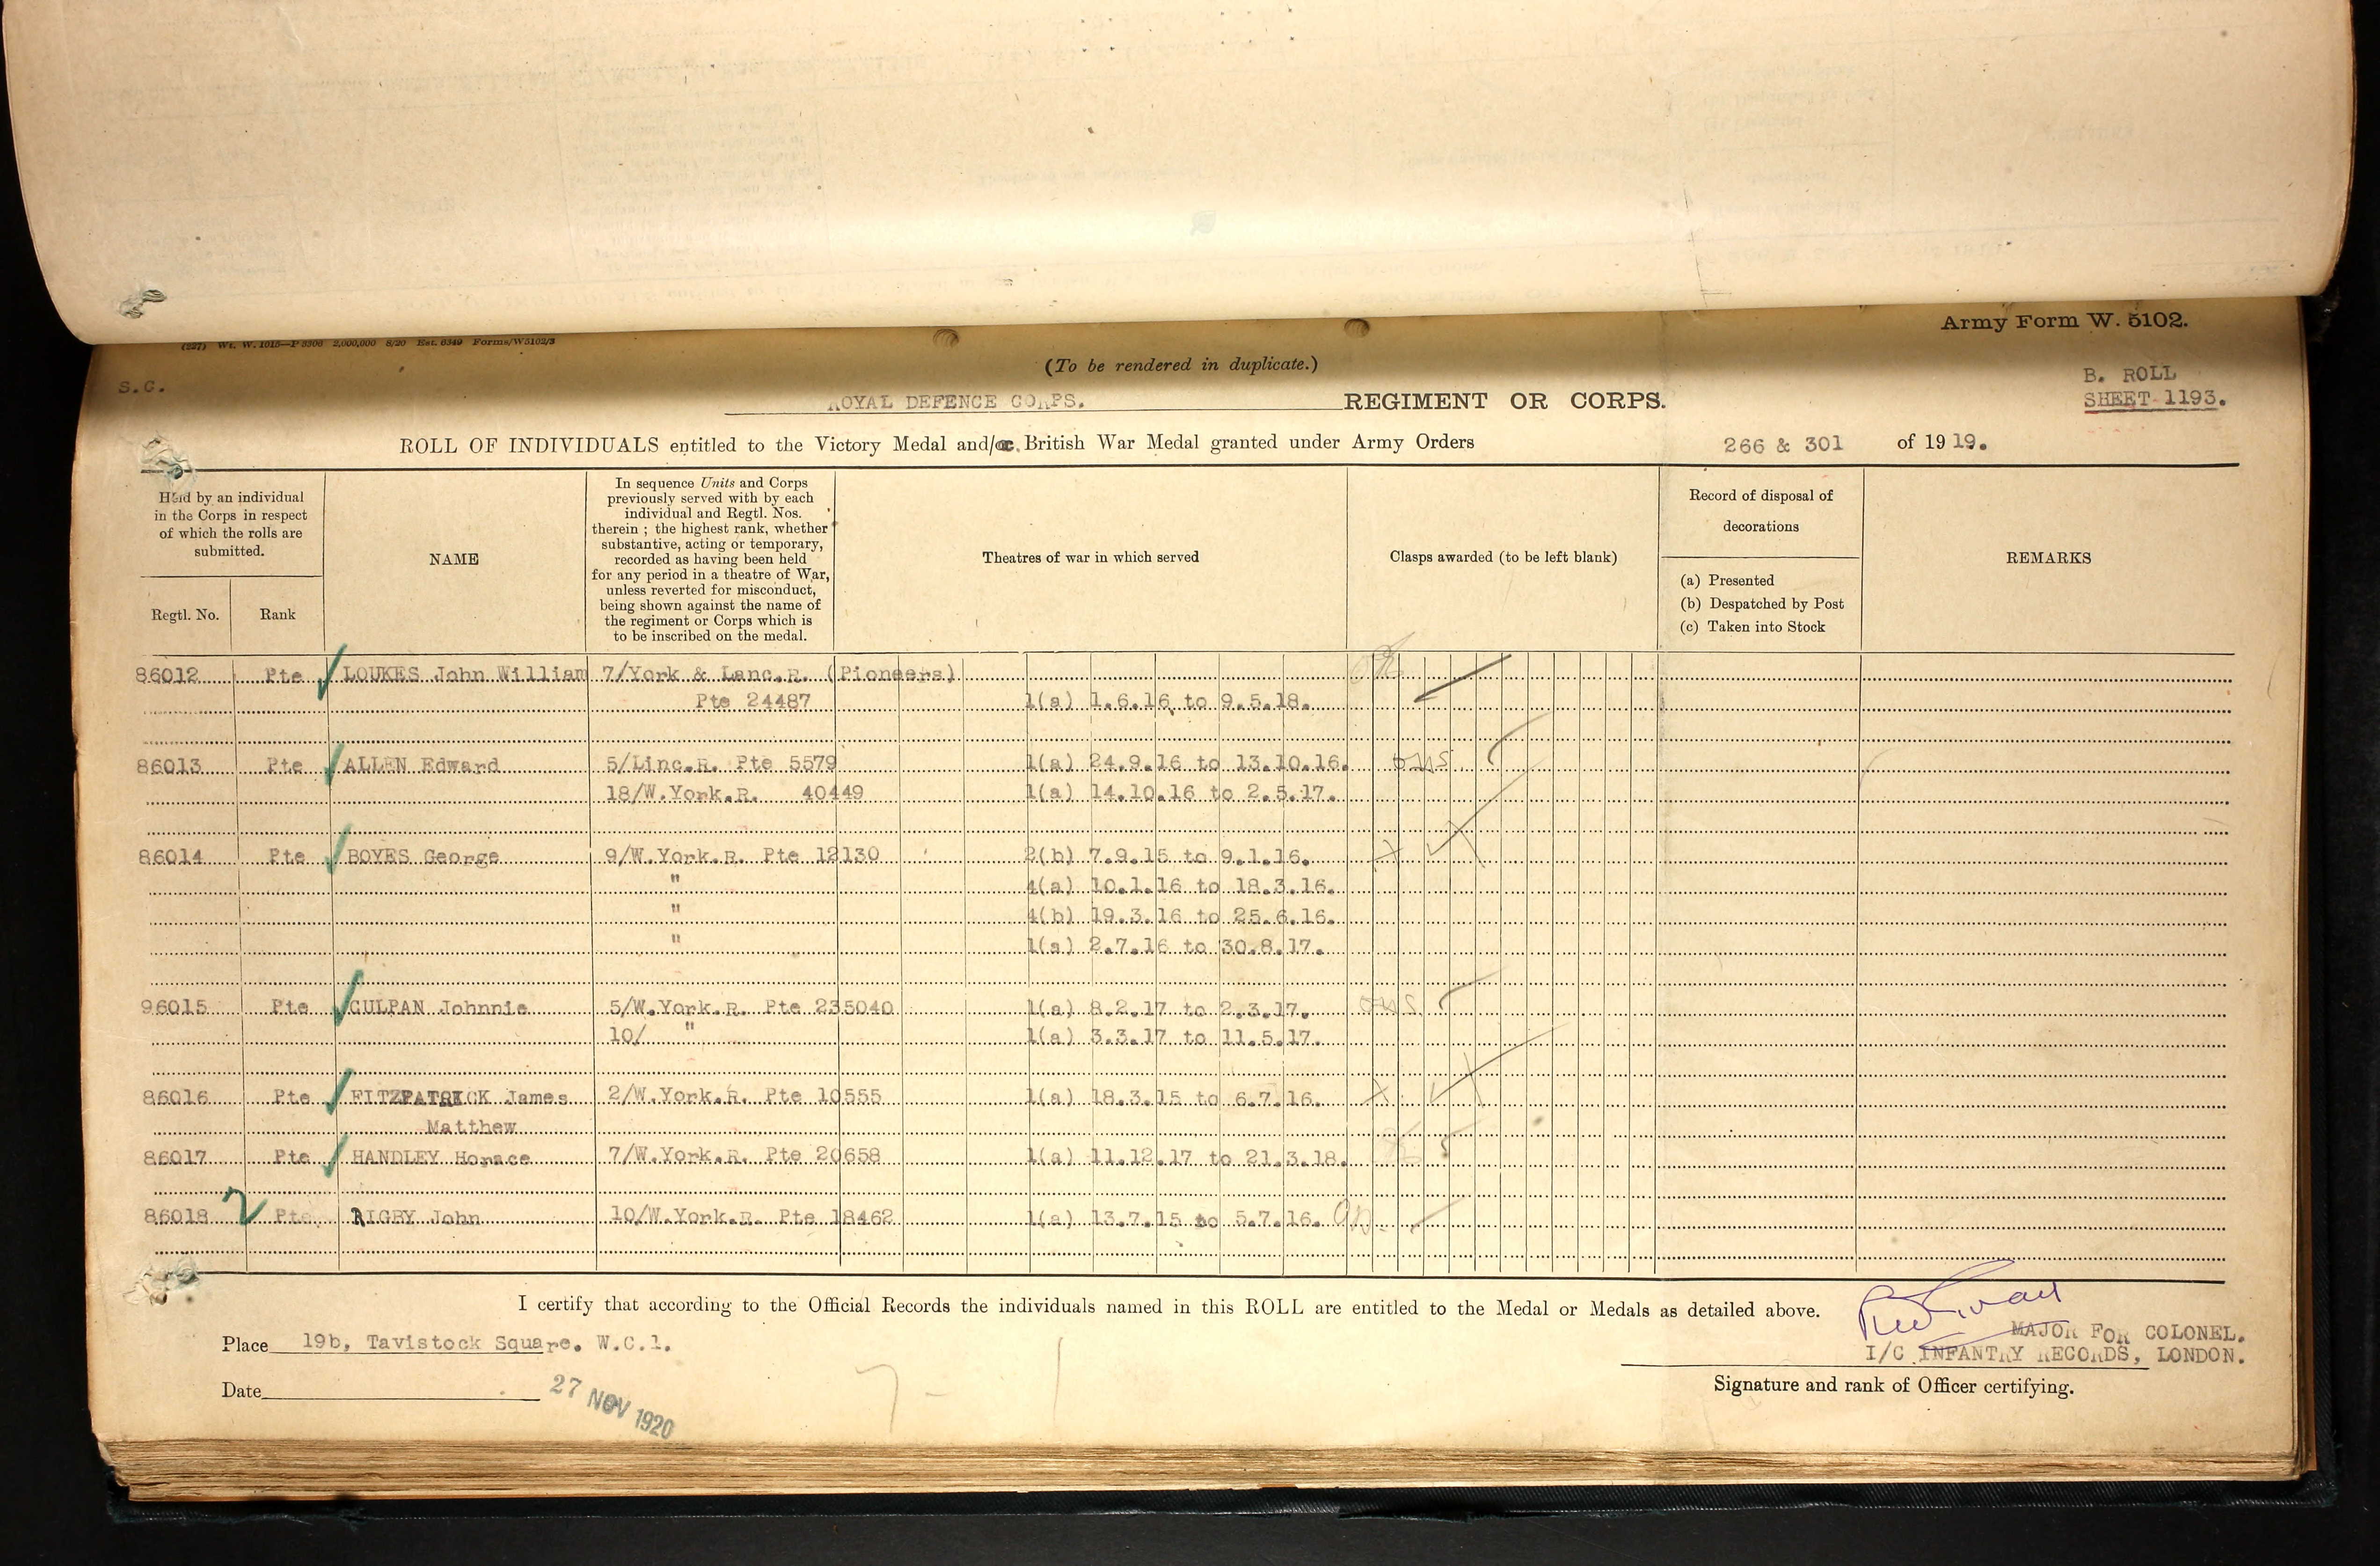 Army Form W. 5102.
(227) Wt. W. 1015—P 8306 2,000,000 8/20 Est. 6349 Forms/W5102/3
(To be rendered in duplicate.)
S.C.
B. ROLL
ROYAL DEFENCE CORPS. REGIMENT OR CORPS.
SHEET 1193.
ROLL OF INDIVIDUALS entitled to the Victory Medal and/or British War Medal granted under Army Orders 266 & 301 of 1919.
Held by an individual
in the Corps in respect
of which the rolls are
submitted.
Regtl. No.
Rank
NAME
In sequence Units and Corps
previously served with by each
individual and Regtl. Nos.
therein ; the highest rank, whether
substantive, acting or temporary,
recorded as having been held
for any period in a theatre of War,
unless reverted for misconduct,
being shown against the name of
the regiment or Corps which is
to be inscribed on the medal.
Theatres of war in which served
Clasps awarded (to be left blank)
Record of disposal of
decorations
(a) Presented
(b) Despatched by Post
(c) Taken into Stock
REMARKS
86012 Pte LOUKES John William 7/York & Lanc.R. (Pioneers)
Pte 24487 1(a) 1.6.16 to 9.5.18.
86013 Pte ALLEN Edward 5/Linc.R. Pte 5579 1(a) 24.9.16 to 13.10.16.
18/W.York.R. 40449 1(a) 14.10.16 to 2.5.17.
86014 Pte BOYES George 9/W.York.R. Pte 12130 2(b) 7.9.15 to 9.1.16.
" 4(a) 10.1.16 to 18.3.16.
" 4(b) 19.3.16 to 25.6.16.
" 1(a) 2.7.16 to 30.8.17.
96015 Pte CULPAN Johnnie 5/W.York.R. Pte 235040 1(a) 8.2.17 to 2.3.17.
10/ " 1(a) 3.3.17 to 11.5.17.
86016 Pte FITZPATRICK James 2/W.York.R. Pte 10555 1(a) 18.3.15 to 6.7.16.
Matthew
86017 Pte HANDLEY Horace 7/W.York.R. Pte 20658 1(a) 11.12.17 to 21.3.18.
86018 Pte RIGBY John 10/W.York.R. Pte 18462 1(a) 13.7.15 to 5.7.16.
I certify that according to the Official Records the individuals named in this ROLL are entitled to the Medal or Medals as detailed above.
Place 19b, Tavistock Square. W.C.1.
MAJOR FOR COLONEL.
I/C INFANTRY RECORDS, LONDON.
Date 27 NOV 1920
Signature and rank of Officer certifying.